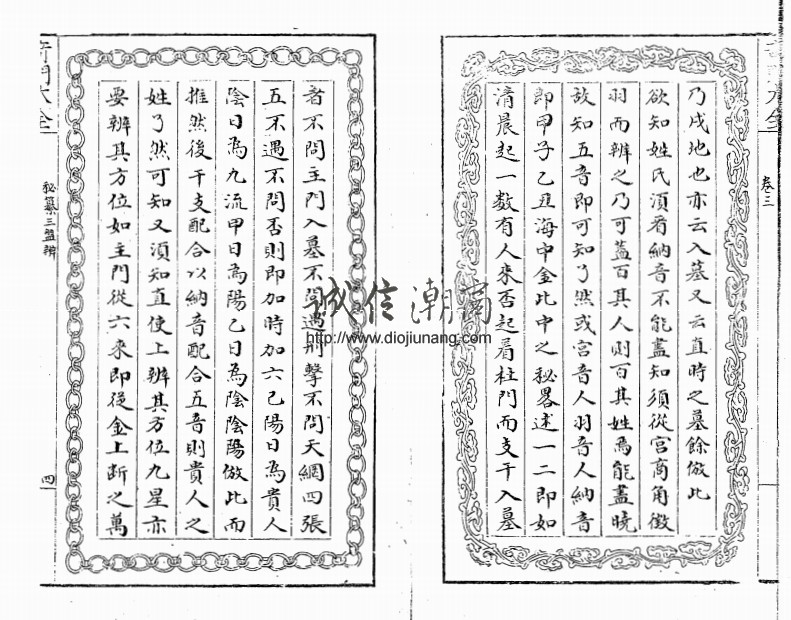 卷三
乃戌地也亦云入墓又云直時之墓餘倣此
欲知姓氏須看納音不能盡知須從宮商角徵
羽而辨之乃可蓋百其人則百其姓焉能盡曉
故知五音即可知了然或宮音人羽音人納音
即甲子乙丑海中金此中之秘畧述一二即如
清晨起一数有人來否起看杜門而支干入墓
者不問主門入墓不問遇刑擊不問天網四張
五不遇不問否則即加時加六己陽日為貴人
陰日為九流甲日為陽乙日為陰陰陽倣此而
推然後干支配合以納音配合五音則貴人之
姓了然可知又須知直使上辨其方位九星亦
要辨其方位如主門從六來即從金上斷之萬
奇門大全
秘纂三盤辨
四
誠信潮商
http://www.diojiunang.com